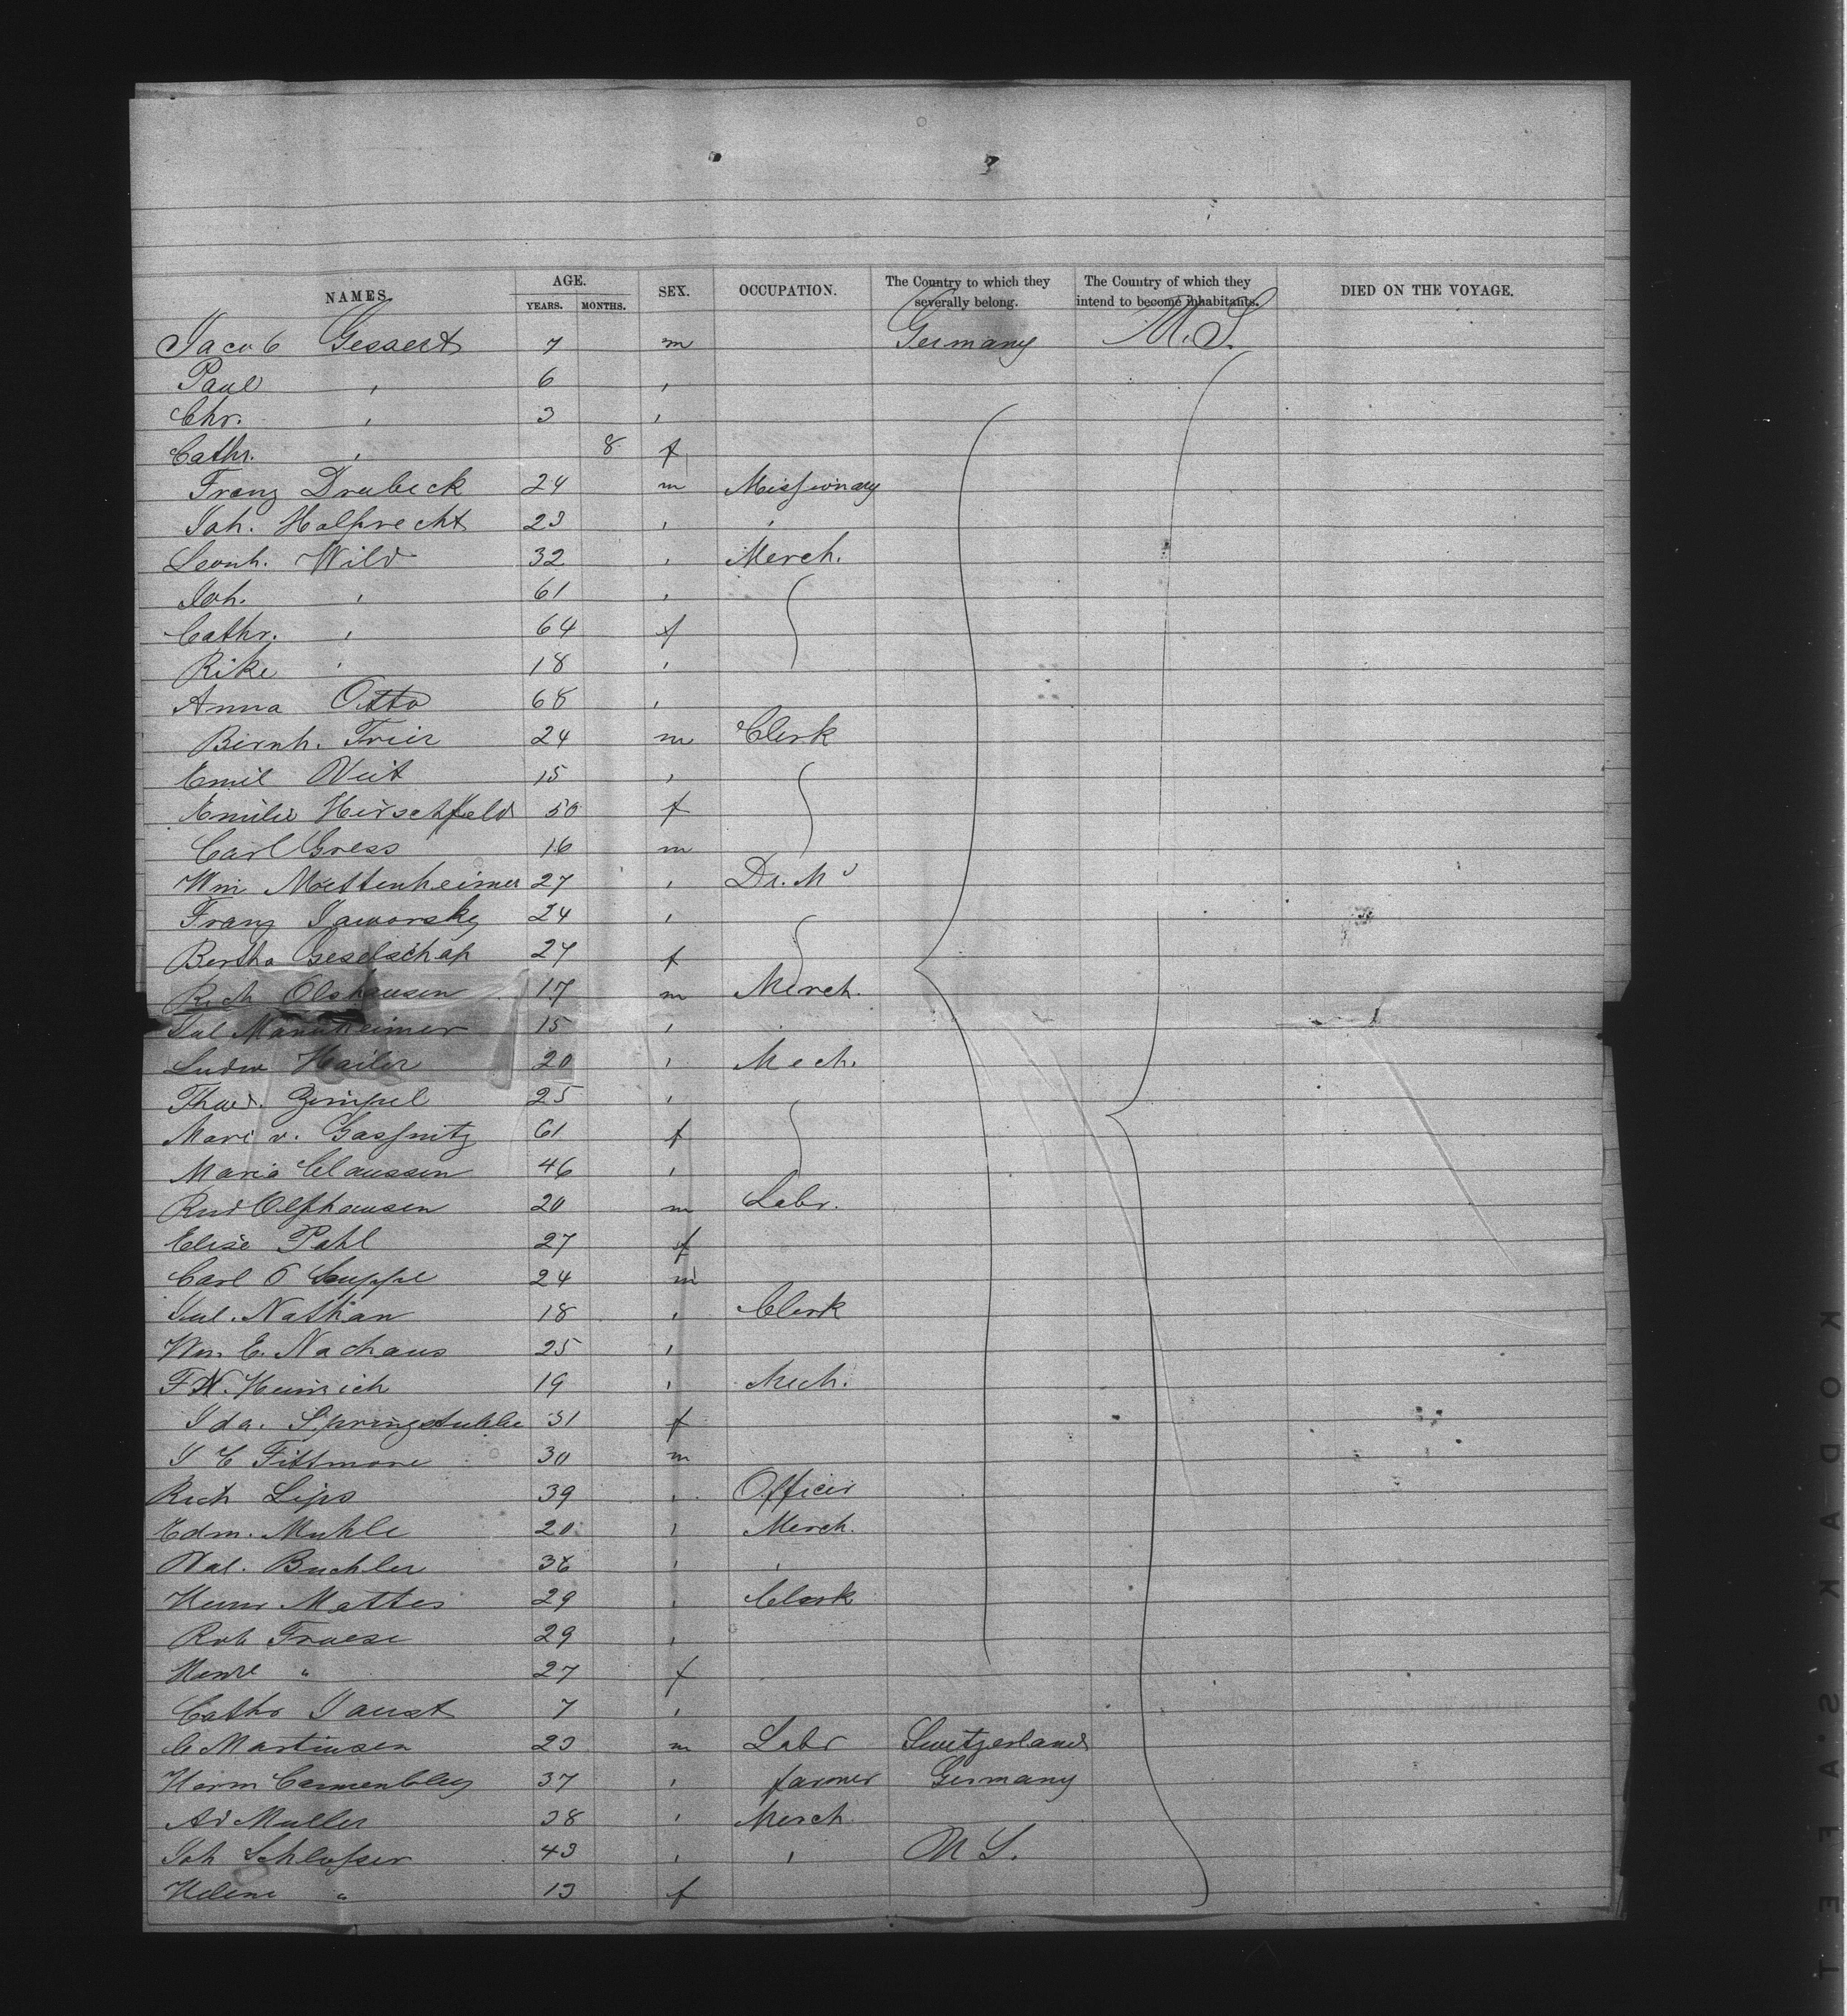 NAMES. AGE. YEARS. MONTHS. SEX. OCCUPATION. The Country to which they severally belong. The Country of which they intend to become inhabitants. DIED ON THE VOYAGE.
Jacob Gessert 7 m Germany U.S.
Paul " 6 "
Chr. " 3 "
Cathr. " 8 f
Franz Drabeck 24 m Missionary
Joh. Holprecht 23 " "
Leonh. Wild 32 " Merch.
Joh. " 61 "
Cathr. " 64 f
Rike " 18 "
Anna Otto 68 "
Bernh. Trier 24 m Clerk
Emil Veit 15 "
Emilie Hirschfeld 50 f
Carl Gress 16 m
Wm Mettenheimer 27 " Dr. M
Franz Jaworsky 24 "
Bertha Geselschap 27 f
Rich Olshausen 17 m Merch.
Jul Mannheimer 15 "
Ludw Hailer 20 " Mech.
Thad. Gimpel 25 "
Mari v. Gassnitz 61 f
Maria Claussen 46 "
Rud Olshausen 20 m Labr.
Elise Pahl 27 f
Carl Suppe 24 m
Jul. Nathan 18 " Clerk
Wm. E. Nachaus 25 "
Heinrich 19 " Mech.
Ida. 31 f
J C Fittmore 30 m
Rich Lips 39 " Officer
Edm. Muhle 20 " Merch.
Val. Buchler 36 " "
Heinr Mattes 29 " Clerk
Rob Fraese 29 "
" 27 f
Cathr Faust 7 "
C Martinsen 23 m Labr Switzerland
Herm 37 " farmer Germany
Ad Muller 38 " Merch
Joh Schlosser 43 " " U S.
Helene " 13 f
KODAK SAFET